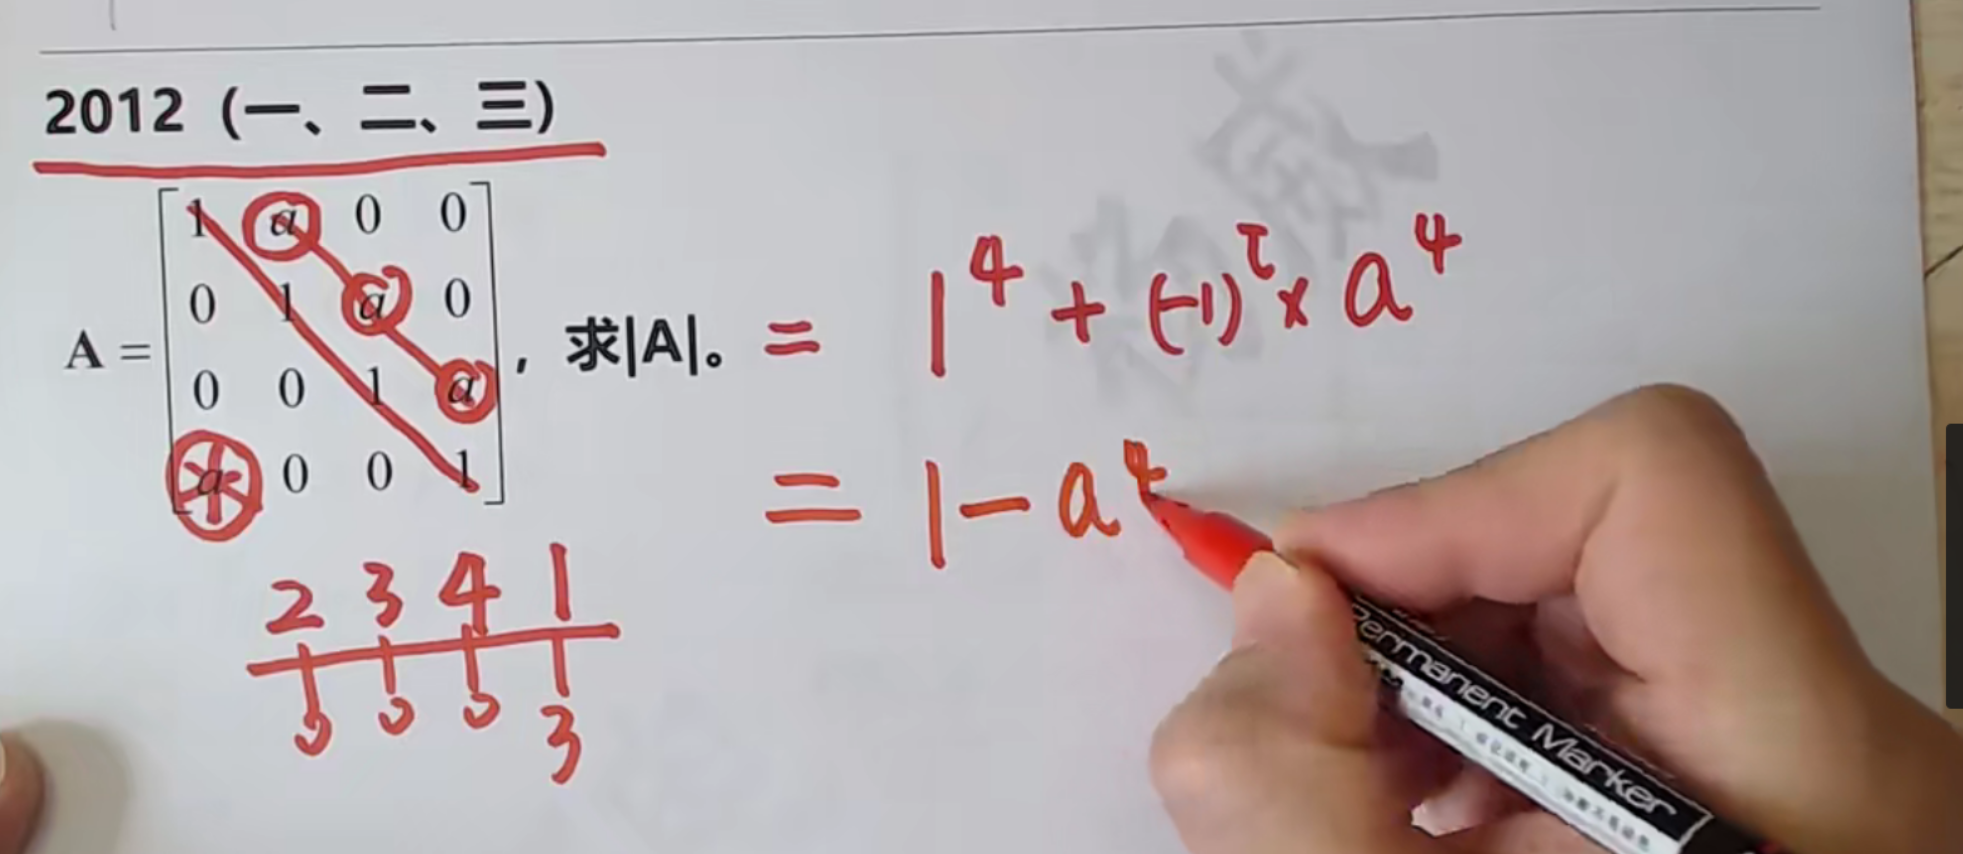 2012（一、二、三）
A = [1 a 0 0
0 1 a 0
0 0 1 a
a 0 0 1]，求|A|。 = 1^4 + (-1)^τ × a^4
= 1 - a^4
2 3 4 1
0 0 0 3
Permanent Marker